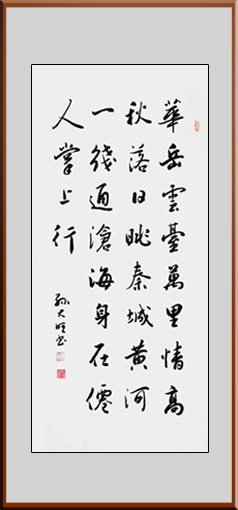 華岳雲臺萬里情高
秋落日眺秦城黃河
一綫通滄海身在僊
人掌上行
孙大旺书